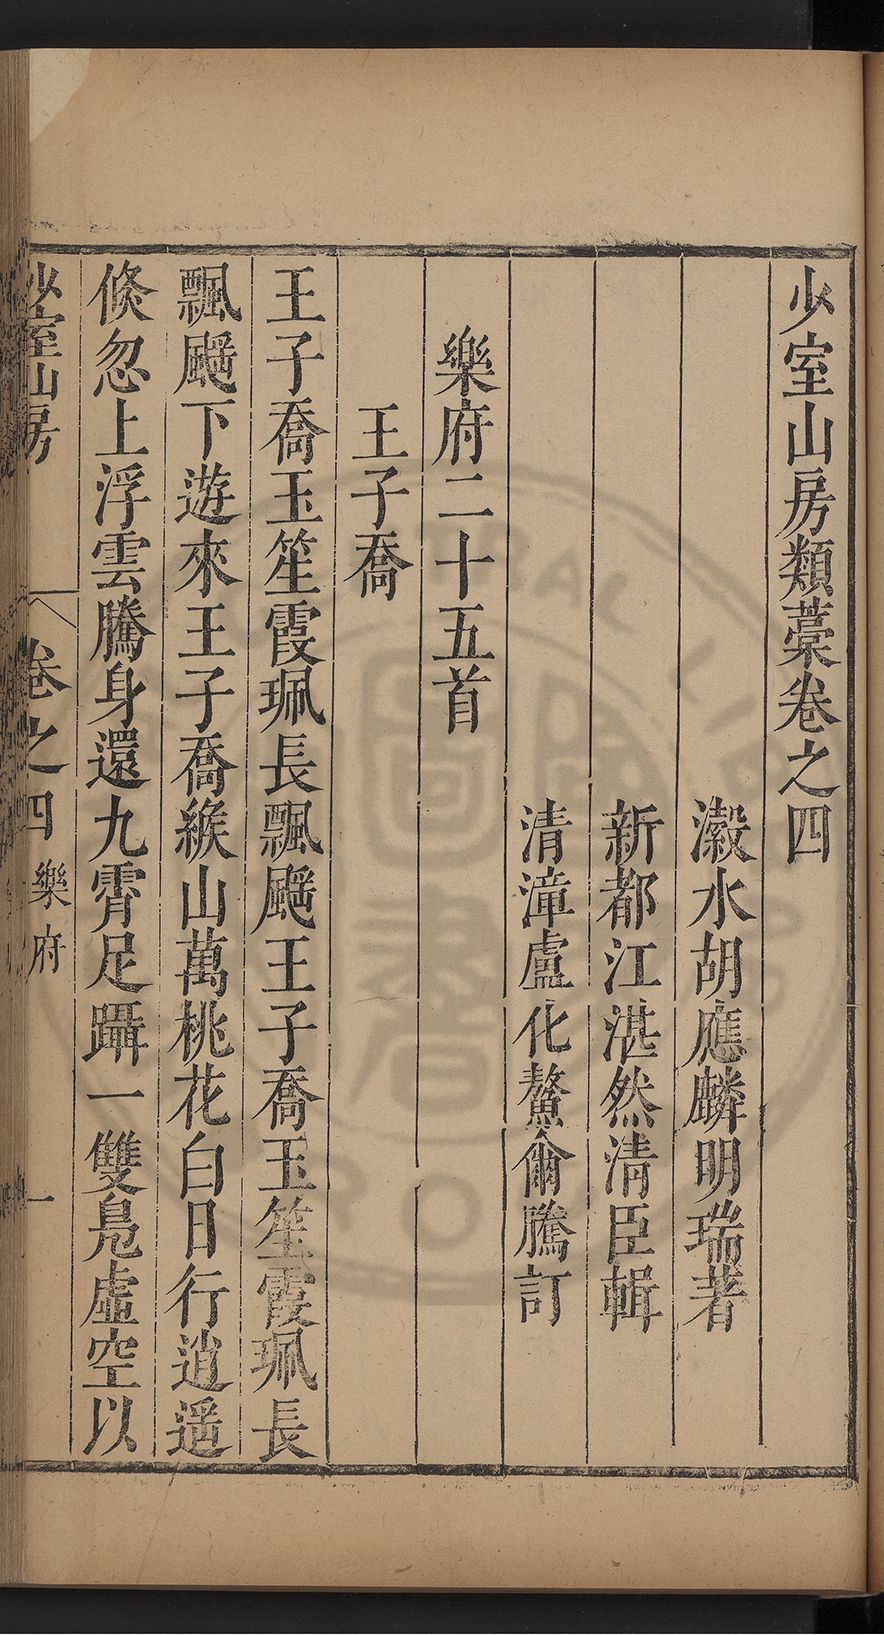 少室山房類藁卷之四
瀫水胡應麟明瑞著
新都江湛然清臣輯
清漳盧化鰲爾騰訂
樂府二十五首
王子喬
王子喬玉笙霞珮長飄飈王子喬玉笙霞珮長
飄飈下遊來王子喬緱山萬桃花白日行逍遥
倏忽上浮雲騰身還九霄足躡一雙鳧虛空以
少室山房
卷之四
樂府
一